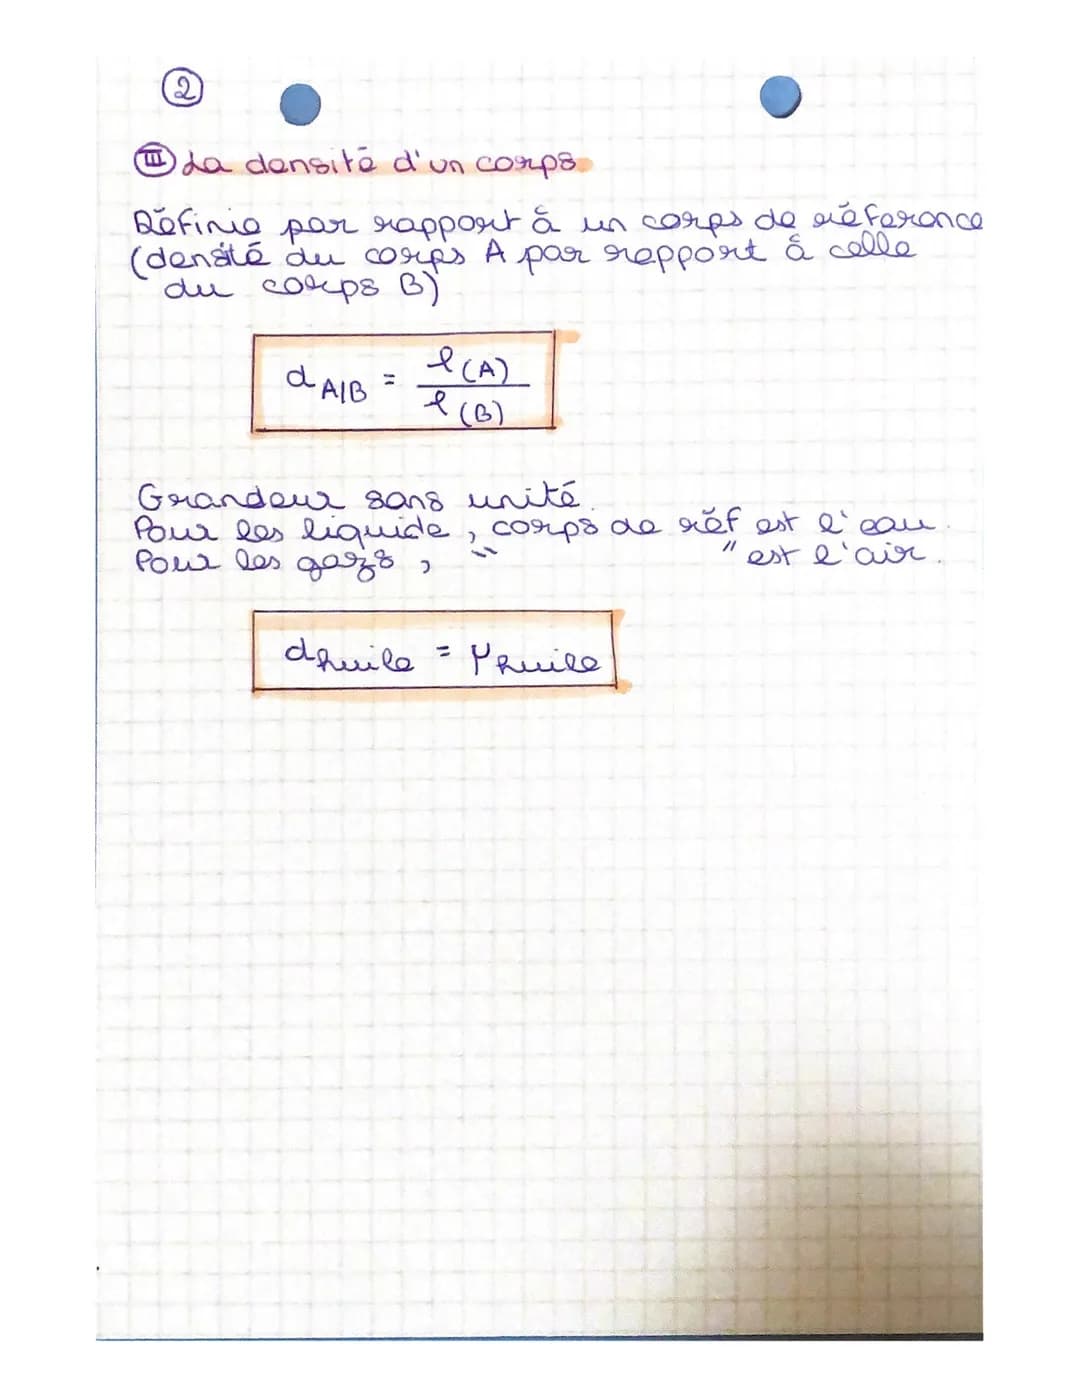 2
III La densité d'un corps
Définie par rapport à un corps de référence
(densité du corps A par rapport à celle
du corps B)
d A/B = ρ(A)
ρ(B)
Grandeur sans unité.
Pour les liquide, corps de réf est l'eau.
Pour les gazs, " " est l'air.
dhuile = μhuile